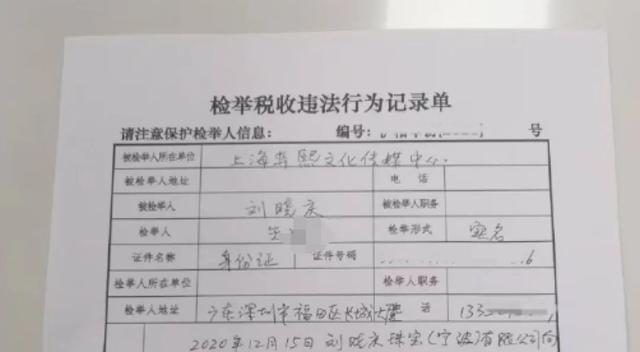 检举税收违法行为记录单
请注意保护检举人信息： 编号： 号
被检举人所在单位 上海 熙文化传媒中心.
被检举人地址 电 话
被检举人 刘晓庆 被检举人职务
检举人 检举形式 实名
证件名称 身份证 证件号码 6
检举人所在单位 检举人职务
检举人地址 广东深圳市福田区长城大厦 话 133
2020年12月15日刘晓庆珠宝(宁波)有限公司向